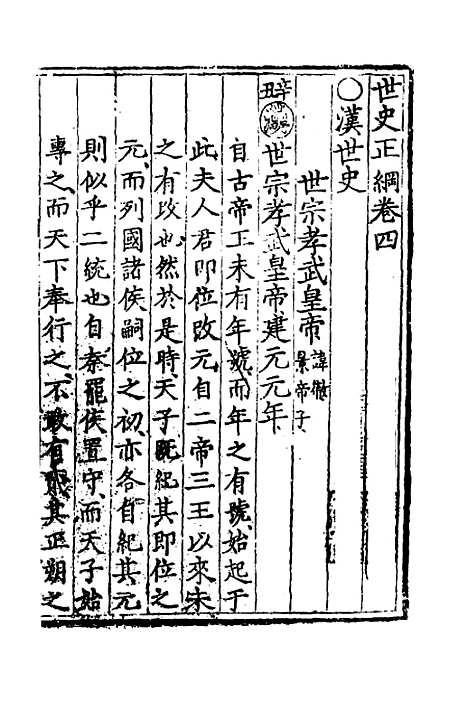 世史正綱卷四
○漢世史
世宗孝武皇帝諱徹景帝子
辛丑世宗孝武皇帝建元元年
自古帝王未有年號而年之有號始起于
此夫人君即位改元自二帝三王以來未
之有改也然於是時天子既紀其即位之
元而列國諸侯嗣位之初亦各自紀其元
則似乎二統也自秦罷侯置守而天子始
專之而天下奉行之不敢有貳其正朔之